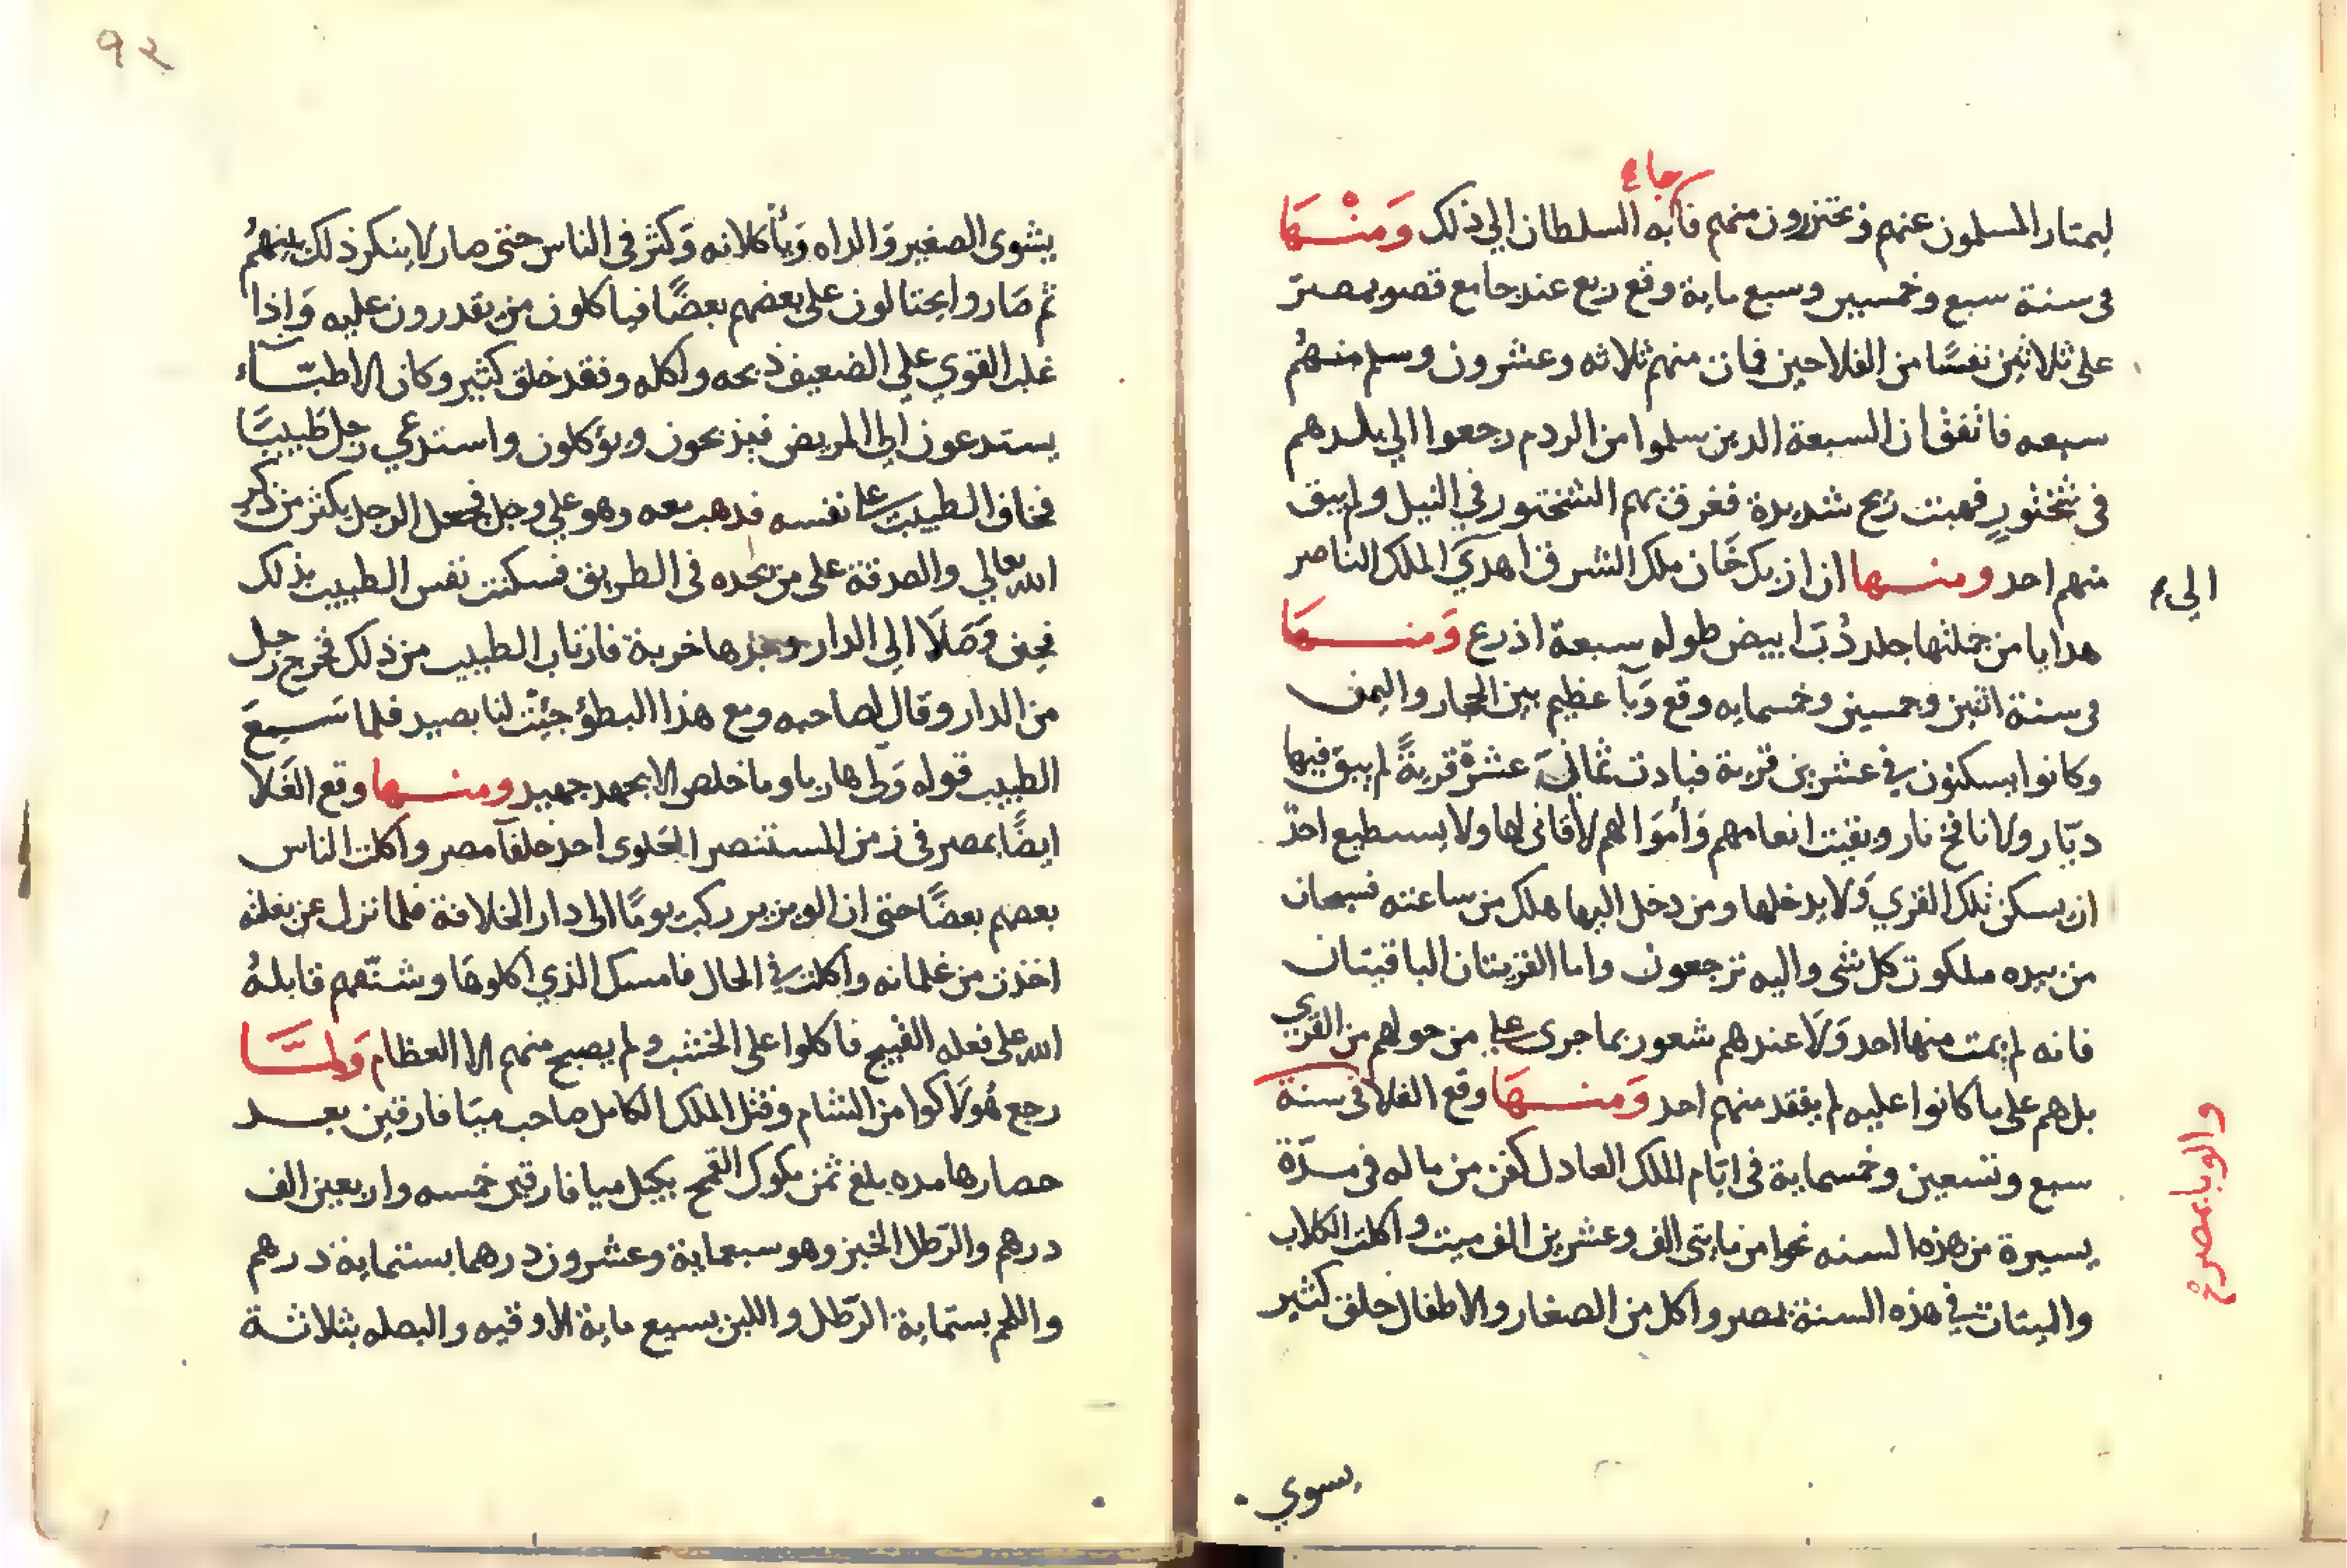 جاء
ليمتار المسلمون عنهم ويحترزون منهم فأجابه السلطان الي ذلك وَمنْهَا
في سنة سبع وخمسين وسبع ماية وقع ربع عند جامع قوصو بمصر
على ثلاثين نفسًا من الفلاحين فمات منهم ثلاثه وعشرون وسلم منهُم
سبعه فاتفق ان السبعة الدين سلموا من الردم رجعوا الي بلدهم
في شختورٍ فهبت ريح شديدة فغرق بهم الشختور في النيل ولم يبق
منهم احد ومنها ان ازبك خان ملك الشرق اهدي الملك الناصر
الي
هدايا من جملتها جلد دُبّ ابيض طوله سبعة اذرع وَمنهَا
في سنة اثنين وخمسين وخمسمايه وقع وبآ عظيم بين الحجاز واليمن
وكانوا يسكنون في عشرين قرية فبادت ثماني عشرة قريةً لم يبق فيها
ديّار ولا نافخ نار وبقيت انعامهم وَأموَالهم لا قاني لها ولا يستطيع احدٌ
ان يسكن تلك القري وَلا يدخلها ومن دخل اليها هلك من ساعته فسبحان
من بيده ملكوت كل شي واليه ترجعون واما القريتان الباقيتان
فانه لم يمت منها احد وَلَا عندهم شعور بما جرى على من حولهم من القري
بل هم على ما كانوا عليه لم يفقد منهم احد وَمنهَا وقع الغلا في سنة
والوبا بمصر
سبع وتسعين وخمسماية في ايّام الملك العادل كفن من ماله في مدّة
يسيرة من هذه السنه نحوا من مايتي الف وعشرين الف ميت واكلت الكلاب
والميتات في هذه السنة بمصر واكل من الصغار والاطفال خلق كثير
يسوي
٩٢
يشوى الصغير وَالداه وَيأكلانه وَكثر في الناس حتى صار لا ينكر ذلك بينهمُ
ثم صَاروا يحتالون على بعضهم بعضًا فياكلون من يقدرون عليه وَاِذا
غلب القوي علي الضعيف ذبحه واكله وفقد خلق كثير وكان الاطبّآء
يستدعون الي المريض فيذبحون ويؤكلون واستدعي رجل طَبيبًا
فخاف الطبيب على نفسه فدهب معه وهو على وجل فجعل الرجل يكثر من ذكر
الله تعالي والصدقة على من يجده في الطريق فسكنت نفس الطبيب بذلك
فحين وَصَلَا الي الدار وجدها خربة فارتاب الطبيب من ذلك فخرج رجل
من الدار وقال لصاحبه ومع هذا البطؤ جئِت لنا بصيد فلما سَمِعَ
الطبيب قوله وَلى هاربا وما خلص الا بجهد جهيد ومنها وقع الغَلا
ايضًا بمصر في زمن المستنصر العلوى احد خلفآ مصر واكلت الناس
بعضهم بعضًا حتى ان الوزير ركب يومًا الى دار الخلافة فلما نزل عن بغلته
اخذت من غلمانه واكلت في الحال فامسك الذي اكلوهَا وشنقهم قابلهُ
الله على فعله القبيح فاكلوا على الخشب ولم يصبح منهم الا العظام وَلمَّا
رجع هُولَاكوا من الشام وقتل الملك الكامل صاحب ميّا فارقين بعد
حصارها مده بلغ ثمن مكوك القمح بكيل ميا فارقين خمسه واربعين الف
درهم والرّطل الخبز وهو سبعماية وعشرون درهما بستماية درهم
واللحم بستماية الرّطل واللبن بسبع ماية الاوقيه والبصله بثلاثة